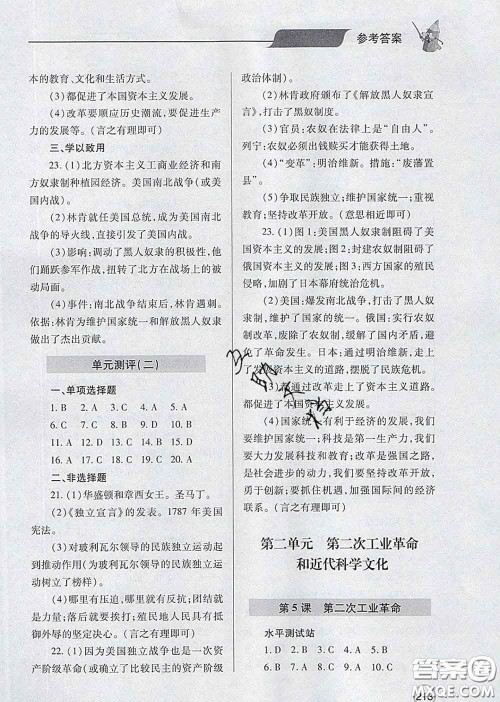 参考答案
本的教育、文化和生活方式。
(3)都促进了本国资本主义发展。
(4)改革要顺应历史潮流,要促进生产
力的发展等。(言之有理即可)
三、学以致用
23. (1)北方资本主义工商业经济和南
方奴隶制种植园经济。美国南北战争(或美
国内战)。
(2)林肯就任美国总统,成为美国南北
战争的导火线,直接引发了美国内战。
(3)影响:调动了黑人奴隶的积极性,他
们踊跃参军作战,扭转了北方在战场上的被
动局面。
(4)事件:南北战争结束后,林肯遇刺。
依据:林肯为维护国家统一和解放黑人奴隶
做出了杰出贡献。
单元测评(二)
一、单项选择题
1. B 2. C 3. C 4. A 5. A
6. B 7. A 8. D 9. C 10. D
11. A 12. D 13. C 14. D 15. C
16. A 17. C 18. C 19. C 20. A
二、非选择题
21. (1)华盛顿和章西女王。圣马丁。
(2)《独立宣言》的发表。1787年美国
宪法。
(3)对玻利瓦尔领导的民族独立运动起
到推动作用(或对玻利瓦尔领导的独立运动
树立了榜样)。
(4)哪里有压迫,哪里就有反抗;团结就
是力量;落后就要挨打;殖民地人民具有抵
御外辱的坚定决心。(言之有理即可)
22. (1)因为美国独立战争也是一次资
产阶级革命(或确立了比较民主的资产阶级
政治体制)。
(2)林肯政府颁布了《解放黑人奴隶宣
言》,废除了黑奴制度。
(3)官员:农奴在法律上是“自由人”。
列宁:农奴必须出钱赎买才能获得土地。
(4)“变革”:明治维新。措施:“废藩置
县”。
(5)争取民族独立;维护国家统一;重视
教育;坚持改革开放。(意思相近即可)
23. (1)图1:美国黑人奴隶制阻碍了美
国资本主义的发展;图2:封建农奴制阻碍了
俄国资本主义的发展;图3:西方国家的殖民
侵略,加剧了日本幕府统治危机。
(2)美国:爆发南北战争,废除了奴隶
制,维护了国家的统一。俄国:农奴
制改革,废除了农奴制,缓解了社会矛盾,避
免了革命发生。日本:通过明治维新,走
上了发展资本主义的道路,摆脱了民族危机。
(3)都通过改革走上了资本主义道路,
都促进了本国资本主义发展。
(4)国家统一有利于经济的发展,我们
要维护国家统一;科技是第一生产力,我们
要大力发展科技和教育;改革是强国之路,
是社会进步的动力,我们要坚持改革开放,
勇于创新;要抓住机遇,加强国际间的经济
联系。(言之有理即可)
第二单元 第二次工业革命
和近代科学文化
第5课 第二次工业革命
水平测试站
1. D 2. B 3. C 4. C 5. A
6. B 7. A 8. C 9. C 10. A
答案圈
MXQE.COM